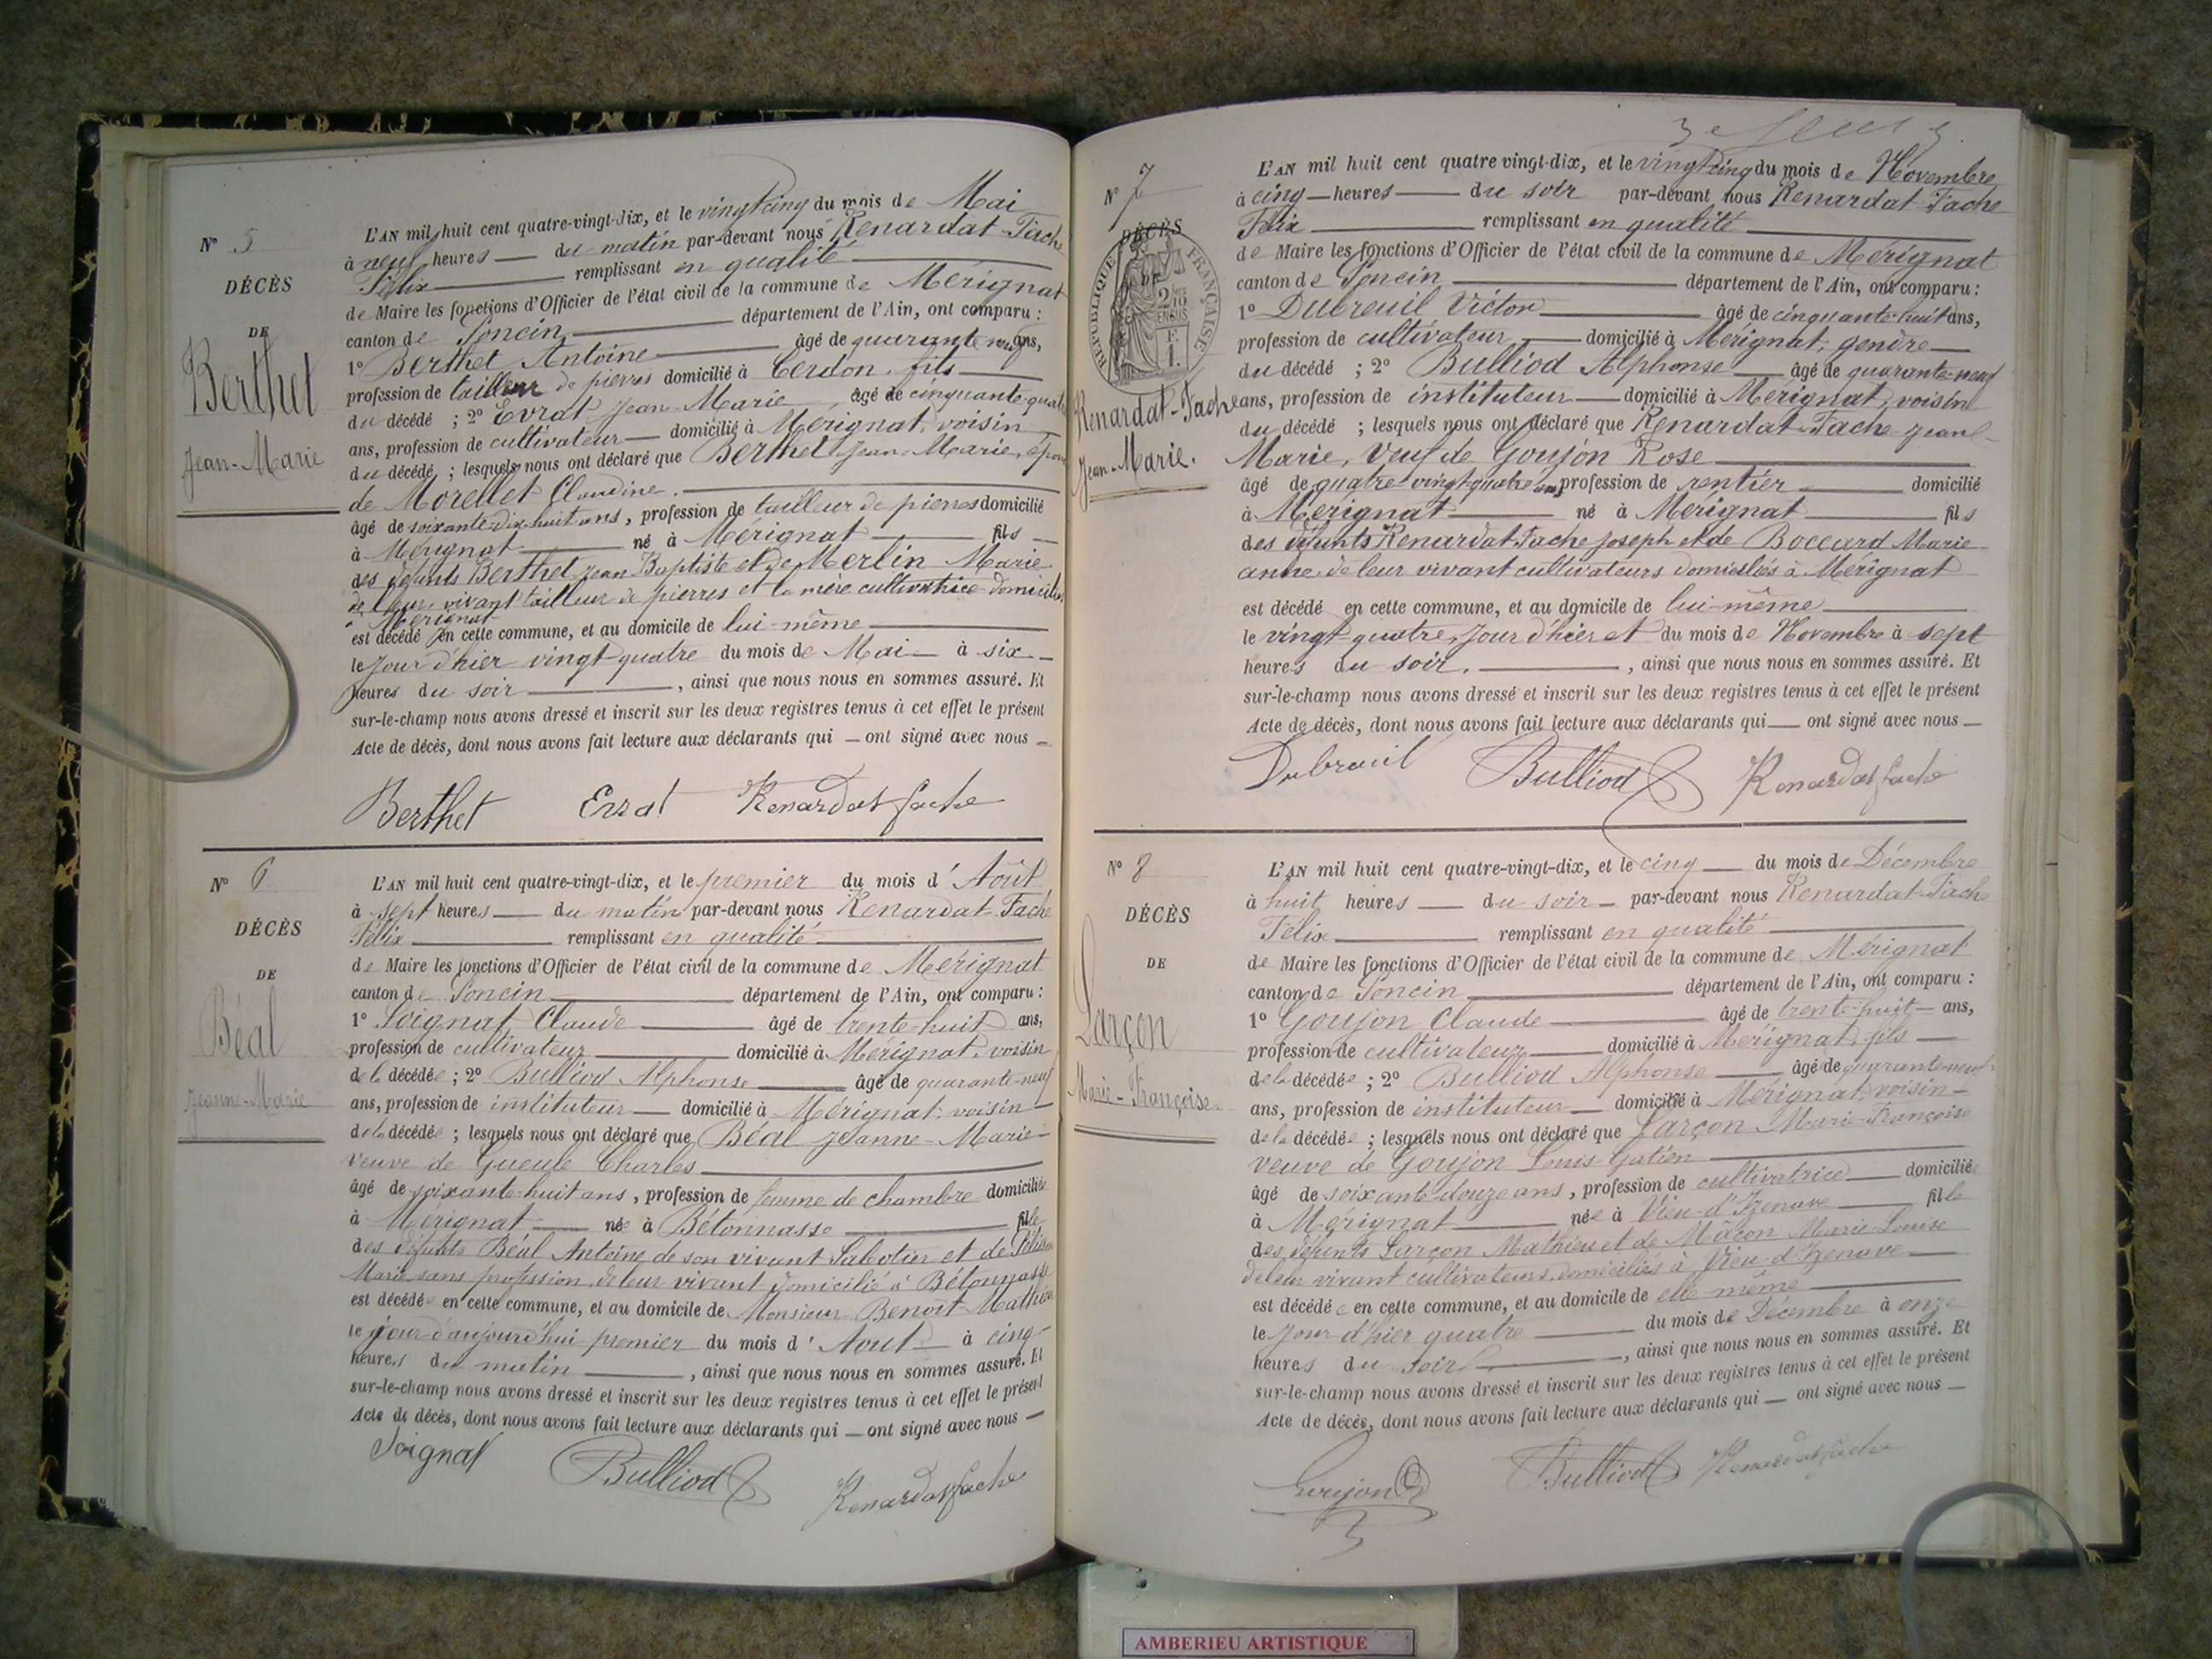 N° 5
DÉCÈS
DE
Berthet
Jean-Marie
L'AN mil huit cent quatre-vingt-dix, et le vingt cinq du mois de Mai
à neuf heures — du matin par-devant nous Renardat-Fache
Félix — remplissant en qualité —
de Maire les fonctions d'Officier de l'état civil de la commune de Mérignat
canton de Poncin — département de l'Ain, ont comparu :
1° Berthet Antoine — âgé de quarante neuf ans,
profession de tailleur de pierres domicilié à Cerdon, fils —
du décédé ; 2° Evrat Jean-Marie, âgé de cinquante-quatre
ans, profession de cultivateur — domicilié à Mérignat, voisin
du décédé ; lesquels nous ont déclaré que Berthet Jean-Marie, époux
de Morellet Claudine. —
âgé de soixante-dix-huit ans, profession de tailleur de pierres domicilié
à Mérignat — né à Mérignat — fils —
des défunts Berthet Jean Baptiste et de Merlin Marie
de leur vivant tailleur de pierres et la mère cultivatrice domiciliés
à Mérignat
est décédé en cette commune, et au domicile de lui-même —
le jour d'hier vingt-quatre du mois de Mai — à six —
heures du soir —, ainsi que nous nous en sommes assuré. Et
sur-le-champ nous avons dressé et inscrit sur les deux registres tenus à cet effet le présent
Acte de décès, dont nous avons fait lecture aux déclarants qui — ont signé avec nous —
Berthet Evrat Renardat fache
N° 6
DÉCÈS
DE
Béal
Jeanne-Marie
L'AN mil huit cent quatre-vingt-dix, et le premier du mois d'Août
à sept heures — du matin par-devant nous Renardat-Fache
Félix — remplissant en qualité —
de Maire les fonctions d'Officier de l'état civil de la commune de Mérignat
canton de Poncin — département de l'Ain, ont comparu :
1° Soignat Claude — âgé de trente-huit ans,
profession de cultivateur — domicilié à Mérignat, voisin
de la décédée ; 2° Bulliod Alphonse — âgé de quarante-neuf
ans, profession de instituteur — domicilié à Mérignat, voisin —
de la décédée ; lesquels nous ont déclaré que Béal Jeanne-Marie
veuve de Gueule Charles —
âgé de soixante-huit ans, profession de femme de chambre domiciliée
à Mérignat — née à Bétonnasse — fille
des défunts Béal Antoine, de son vivant Sabotier et de
Marie sans profession, de leur vivant domicilié à Bétonnasse
est décédée en cette commune, et au domicile de Monsieur Benoit Mathieu
le jour d'aujourd'hui premier du mois d'Aout — à cinq —
heures du matin —, ainsi que nous nous en sommes assuré. Et
sur-le-champ nous avons dressé et inscrit sur les deux registres tenus à cet effet le présent
Acte de décès, dont nous avons fait lecture aux déclarants qui — ont signé avec nous —
Soignat Bulliod Renardat fache
N° 7
DÉCÈS
DE
RÉPUBLIQUE FRANÇAISE
Renardat-Fache
Jean-Marie.
L'AN mil huit cent quatre vingt-dix, et le vingt cinq du mois de Novembre
à cinq — heures — du soir par-devant nous Renardat-Fache
Félix — remplissant en qualité —
de Maire les fonctions d'Officier de l'état civil de la commune de Mérignat
canton de Poncin — département de l'Ain, ont comparu :
1° Dubreuil Victor — âgé de cinquante-huit ans,
profession de cultivateur — domicilié à Mérignat, gendre —
du décédé ; 2° Bulliod Alphonse — âgé de quarante-neuf
ans, profession de instituteur — domicilié à Mérignat, voisin
du décédé ; lesquels nous ont déclaré que Renardat-Fache Jean-
Marie, Veuf de Goujon Rose —
âgé de quatre-vingt-quatre ans, profession de rentier — domicilié
à Mérignat — né à Mérignat — fils
des défunts Renardat-Fache Joseph et de Boccard Marie-
anne, de leur vivant cultivateurs domiciliés à Mérignat
est décédé en cette commune, et au domicile de lui-même —
le vingt quatre, jour d'hier et du mois de Novembre à sept
heures du soir. —, ainsi que nous nous en sommes assuré. Et
sur-le-champ nous avons dressé et inscrit sur les deux registres tenus à cet effet le présent
Acte de décès, dont nous avons fait lecture aux déclarants qui — ont signé avec nous —
Dubreuil Bulliod Renardat fache
N° 8
DÉCÈS
DE
Larçon
Marie-Françoise
L'AN mil huit cent quatre-vingt-dix, et le cinq — du mois de Décembre
à huit heures — du soir — par-devant nous Renardat-Fache
Félix — remplissant en qualité —
de Maire les fonctions d'Officier de l'état civil de la commune de Mérignat
canton de Poncin — département de l'Ain, ont comparu :
1° Goujon Claude — âgé de trente-huit — ans,
profession de cultivateur — domicilié à Mérignat, fils —
de la décédée ; 2° Bulliod Alphonse — âgé de quarante neuf
ans, profession de instituteur — domicilié à Mérignat, voisin —
de la décédée ; lesquels nous ont déclaré que Larçon Marie-Françoise
veuve de Goujon Louis Gatien —
âgé de soixante-douze ans, profession de cultivatrice — domiciliée
à Mérignat — née à Vieu-d'Izenave — fille
des défunts Larçon Mathieu et de Mâcon Marie-Louise
de leur vivant cultivateurs domiciliés à Vieu-d'Izenave —
est décédée en cette commune, et au domicile de elle-même —
le jour d'hier quatre — du mois de Décembre à onze
heures du soir —, ainsi que nous nous en sommes assuré. Et
sur-le-champ nous avons dressé et inscrit sur les deux registres tenus à cet effet le présent
Acte de décès, dont nous avons fait lecture aux déclarants qui — ont signé avec nous —
Goujon C Bulliod Renardat fache
AMBERIEU ARTISTIQUE